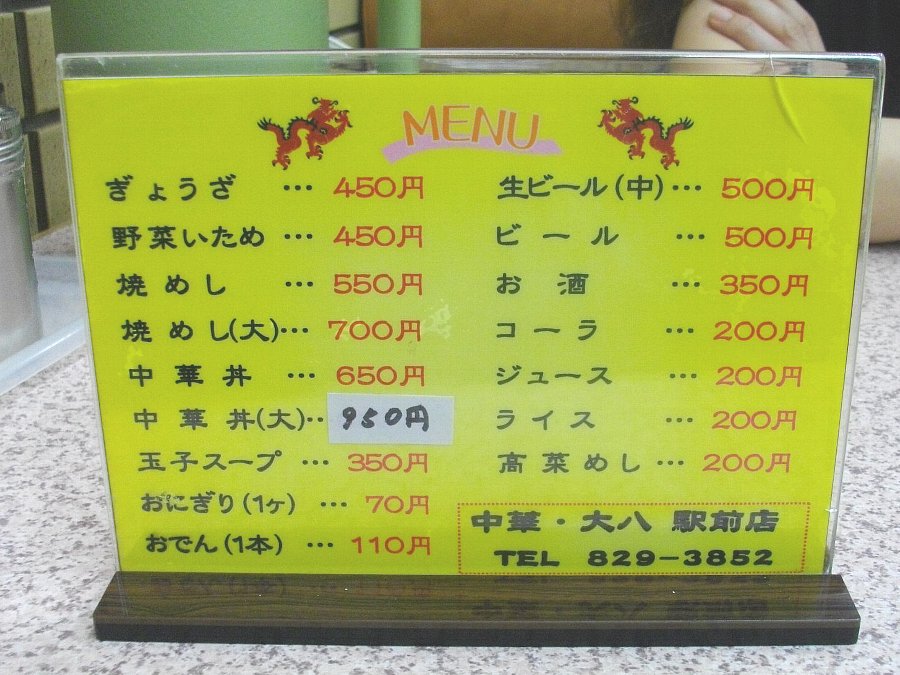 MENU
ぎょうざ … 450円
野菜いため … 450円
焼めし … 550円
焼めし(大)… 700円
中華丼 … 650円
中華丼(大)‥ 950円
玉子スープ … 350円
おにぎり(1ヶ) … 70円
おでん(1本) … 110円
生ビール(中)… 500円
ビール … 500円
お酒 … 350円
コーラ … 200円
ジュース … 200円
ライス … 200円
高菜めし … 200円
中華・大八 駅前店
TEL 829-3852